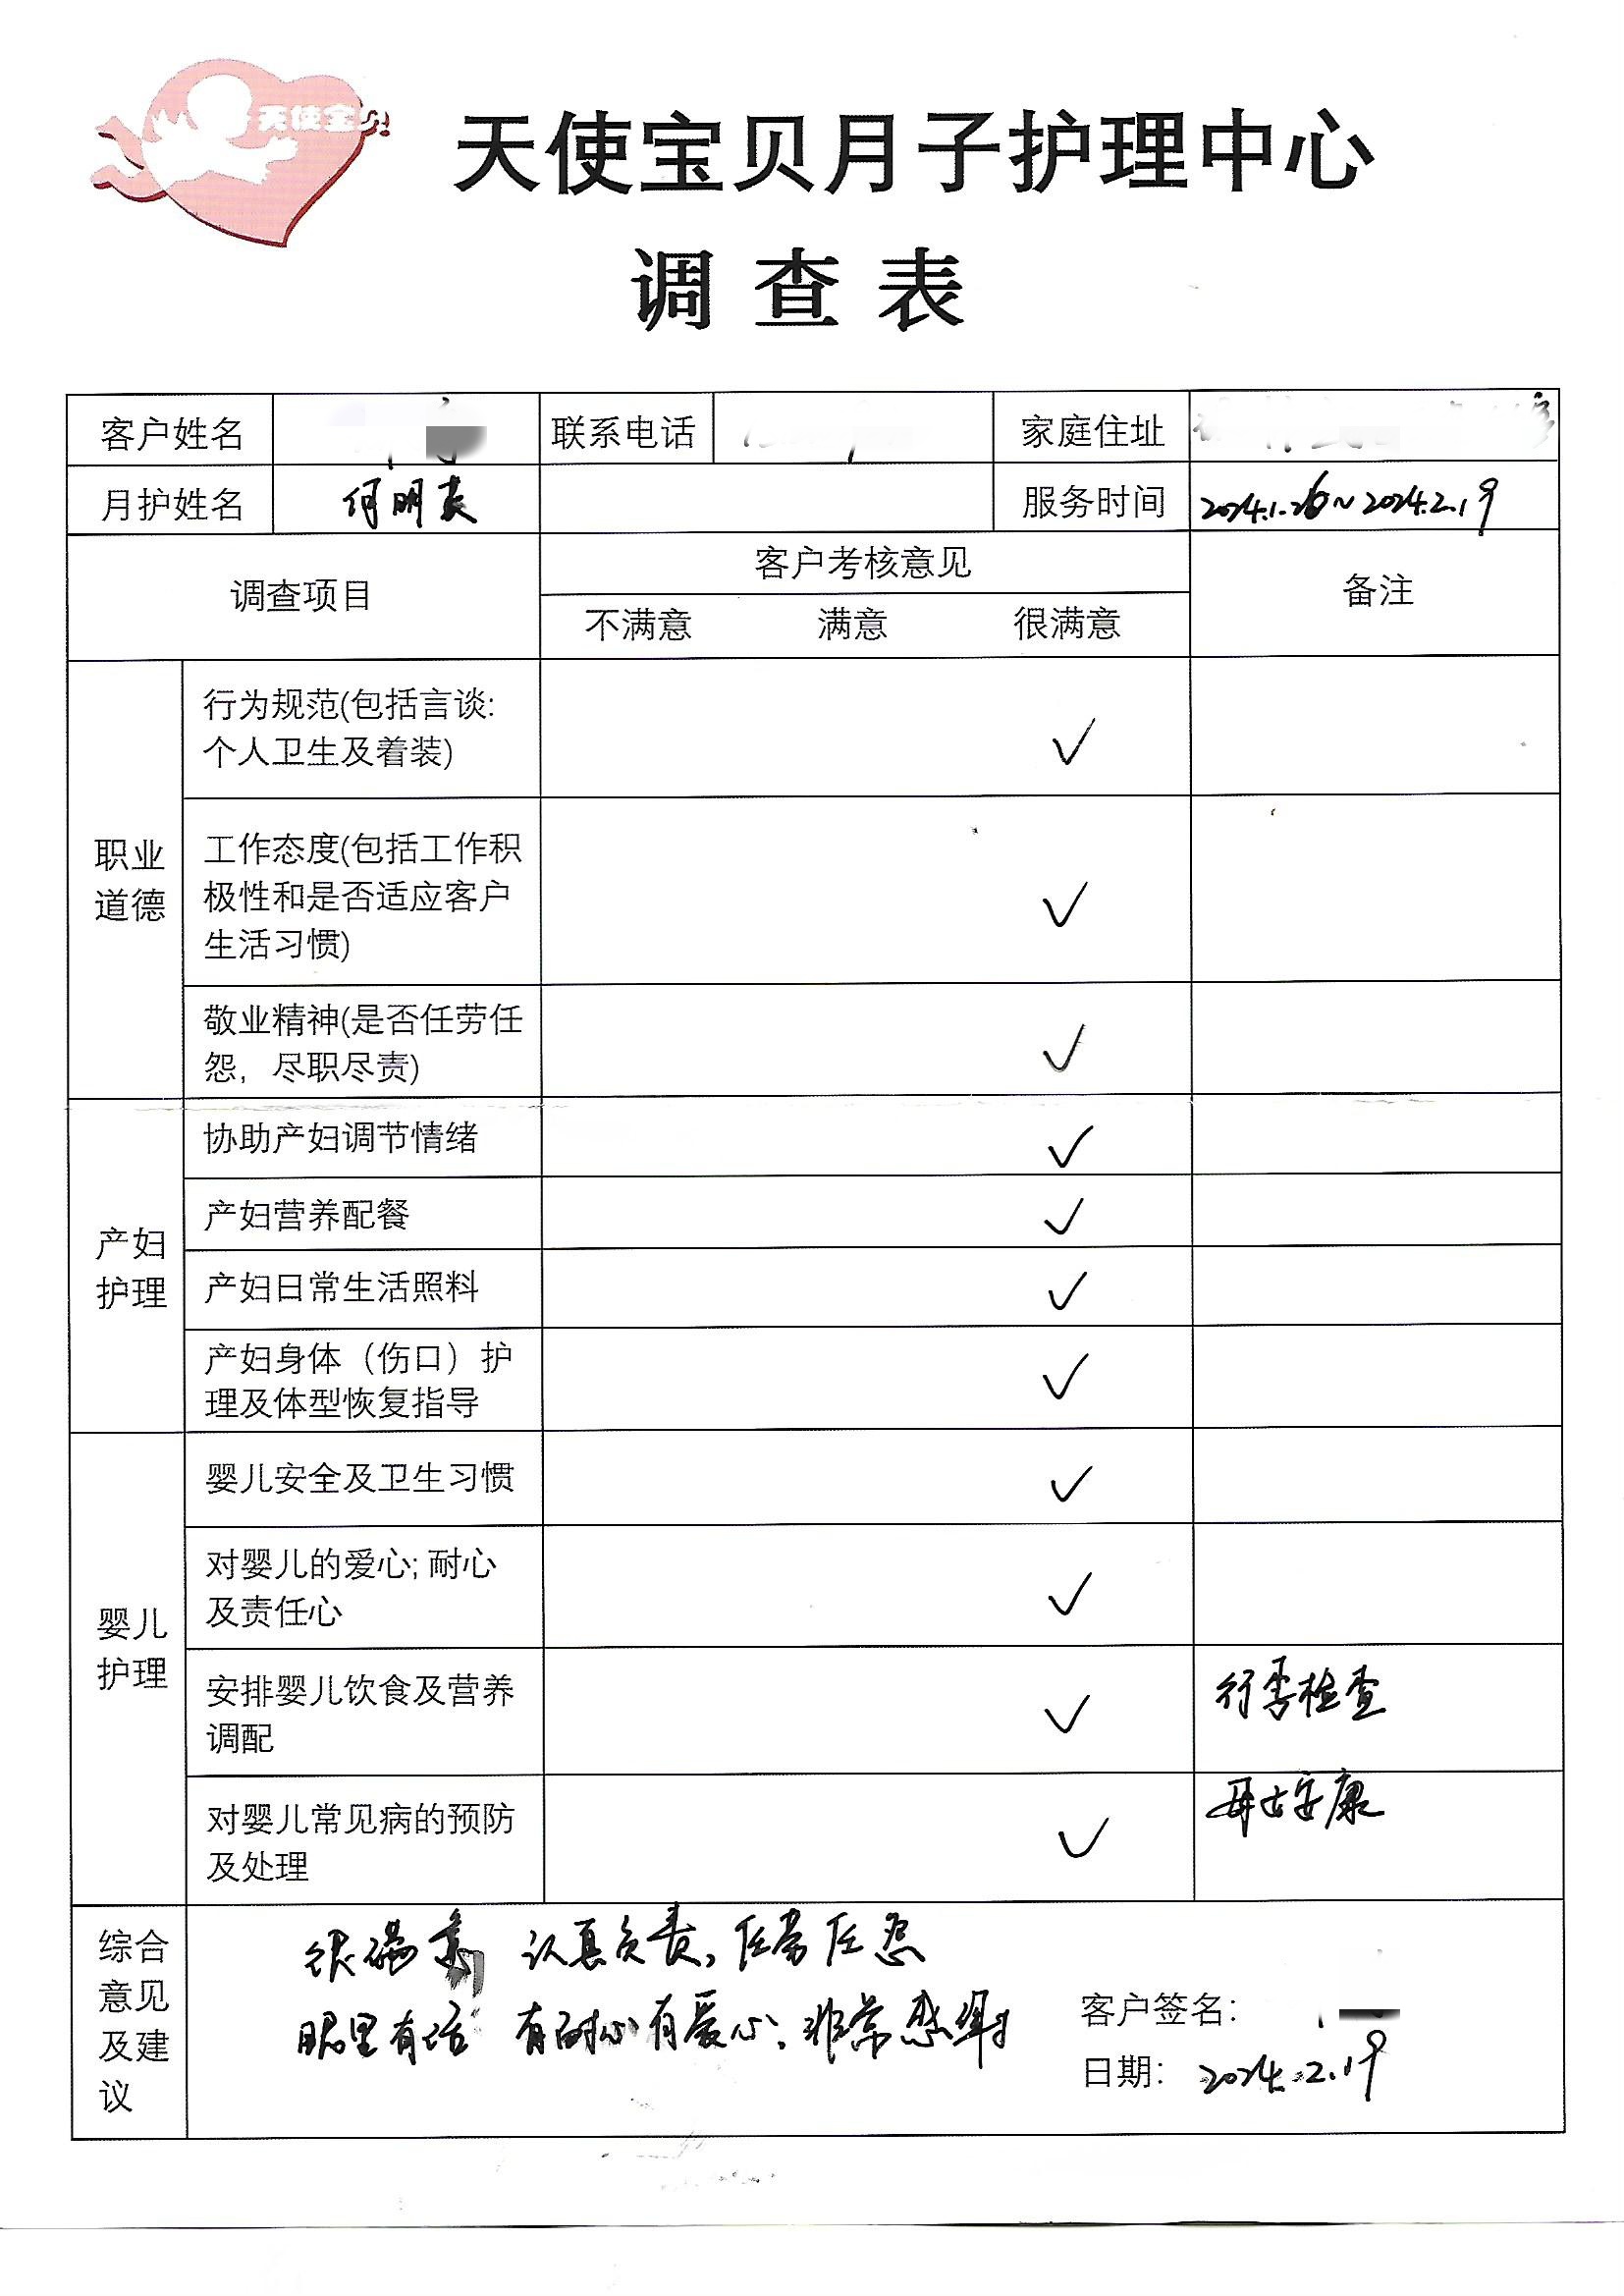 天使宝贝
天使宝贝月子护理中心
调查表
客户姓名 联系电话 家庭住址
月护姓名 何明英 服务时间 2024.1.26~2024.2.19
调查项目 客户考核意见 备注
不满意 满意 很满意
职业道德
行为规范(包括言谈:
个人卫生及着装) ✓
工作态度(包括工作积
极性和是否适应客户
生活习惯) ✓
敬业精神(是否任劳任
怨，尽职尽责) ✓
产妇护理
协助产妇调节情绪 ✓
产妇营养配餐 ✓
产妇日常生活照料 ✓
产妇身体（伤口）护
理及体型恢复指导 ✓
婴儿护理
婴儿安全及卫生习惯 ✓
对婴儿的爱心; 耐心
及责任心 ✓
安排婴儿饮食及营养
调配 ✓ 行李检查
对婴儿常见病的预防
及处理 ✓ 安康
综合意见及建议
很满意 认真负责，任劳任怨
眼里有活 有耐心有爱心、非常感谢
客户签名:
日期: 2024.2.19